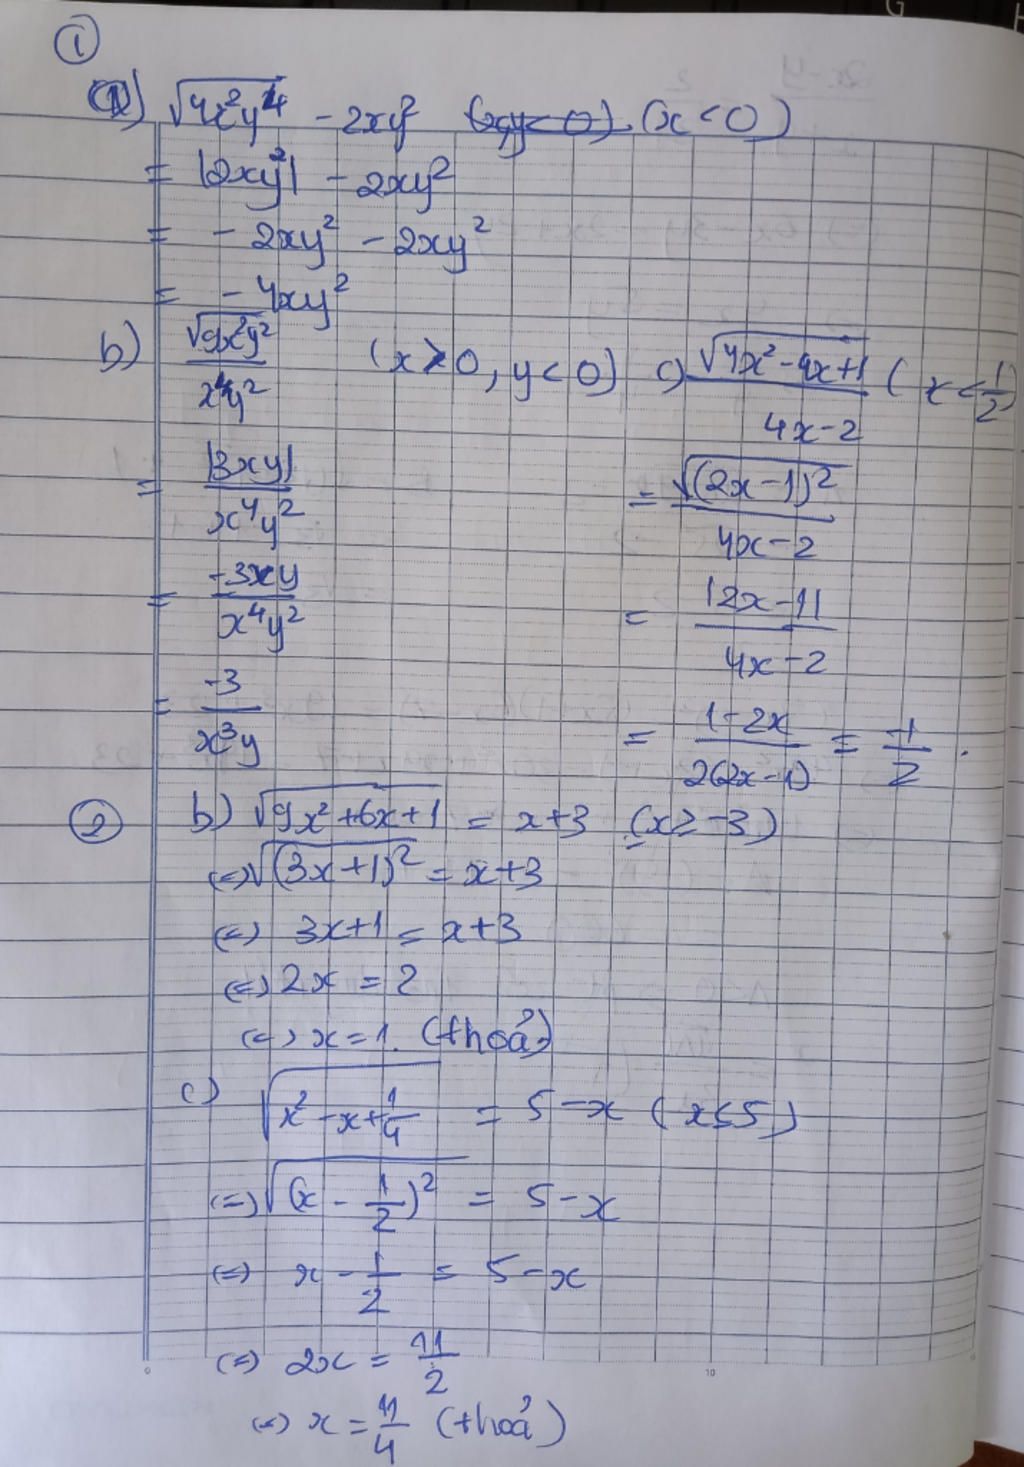 ①
a) √4x²y⁴ - 2xy² (x<0)
= |2xy²| - 2xy²
= - 2xy² - 2xy²
= - 4xy²
b) √9x²y² / x⁴y² (x>0, y<0)
= |3xy| / x⁴y²
= -3xy / x⁴y²
= -3 / x³y
c) √4x²-4x+1 / 4x-2 (x<1/2)
= √(2x-1)² / 4x-2
= |2x-1| / 4x-2
= 1-2x / 2(2x-1) = -1/2.
② b) √9x²+6x+1 = x+3 (x≥-3)
(=) √(3x+1)² = x+3
(=) 3x+1 = x+3
(=) 2x = 2
(=) x=1. (thoả)
c) √x²-x+1/4 = 5-x (x≤5)
(=) √(x-1/2)² = 5-x
(=) x-1/2 = 5-x
(=) 2x = 11/2
(=) x = 11/4 (thoả)